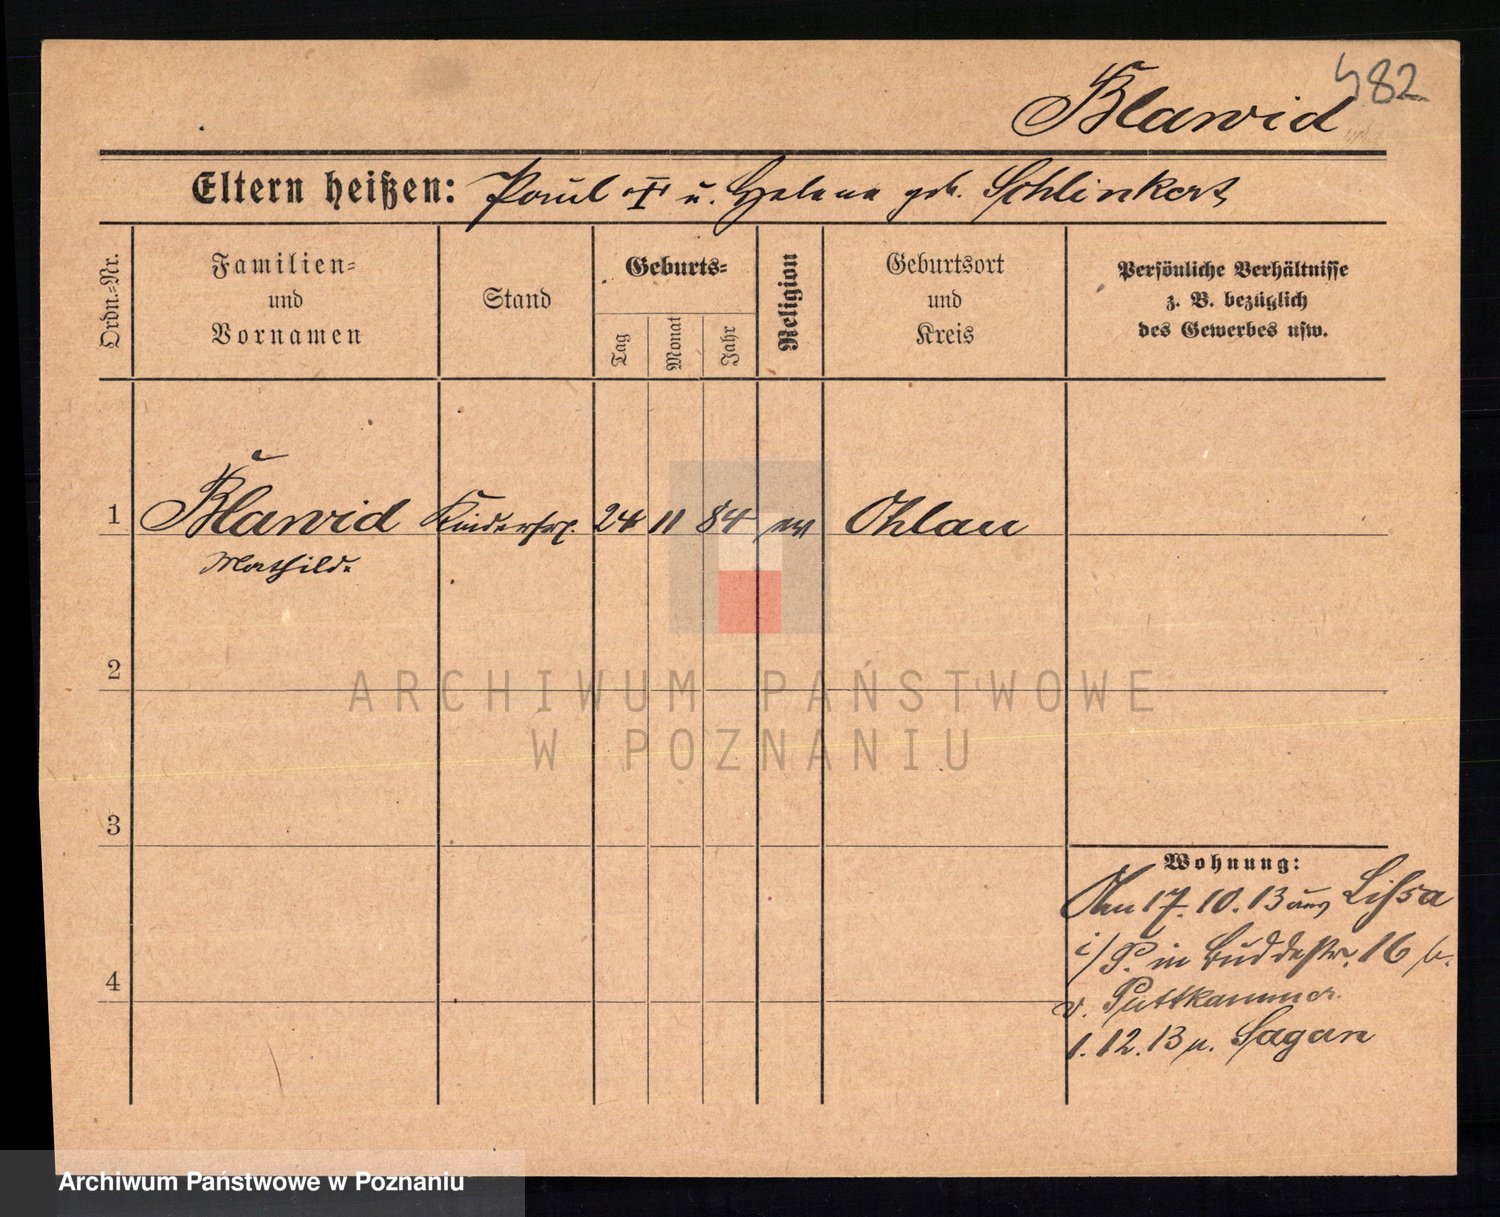 482
Blawid
Eltern heißen: Paul † u. Helene geb. Schlinkert
Ordn.-Nr.
Familien-
und
Vornamen
Stand
Geburts-
Tag
Monat
Jahr
Religion
Geburtsort
und
Kreis
Persönliche Verhältnisse
z. B. bezüglich
des Gewerbes usw.
1 Blawid Kinderfrl. 24 11 84 ev Ohlau
Mathilde
2
3
4
Wohnung:
Am 17. 10. 13 aus Lissa
i/P. in Buddestr. 16 b.
v. Puttkammer
1. 12. 13 n. Sagan
ARCHIWUM PAŃSTWOWE
W POZNANIU
Archiwum Państwowe w Poznaniu